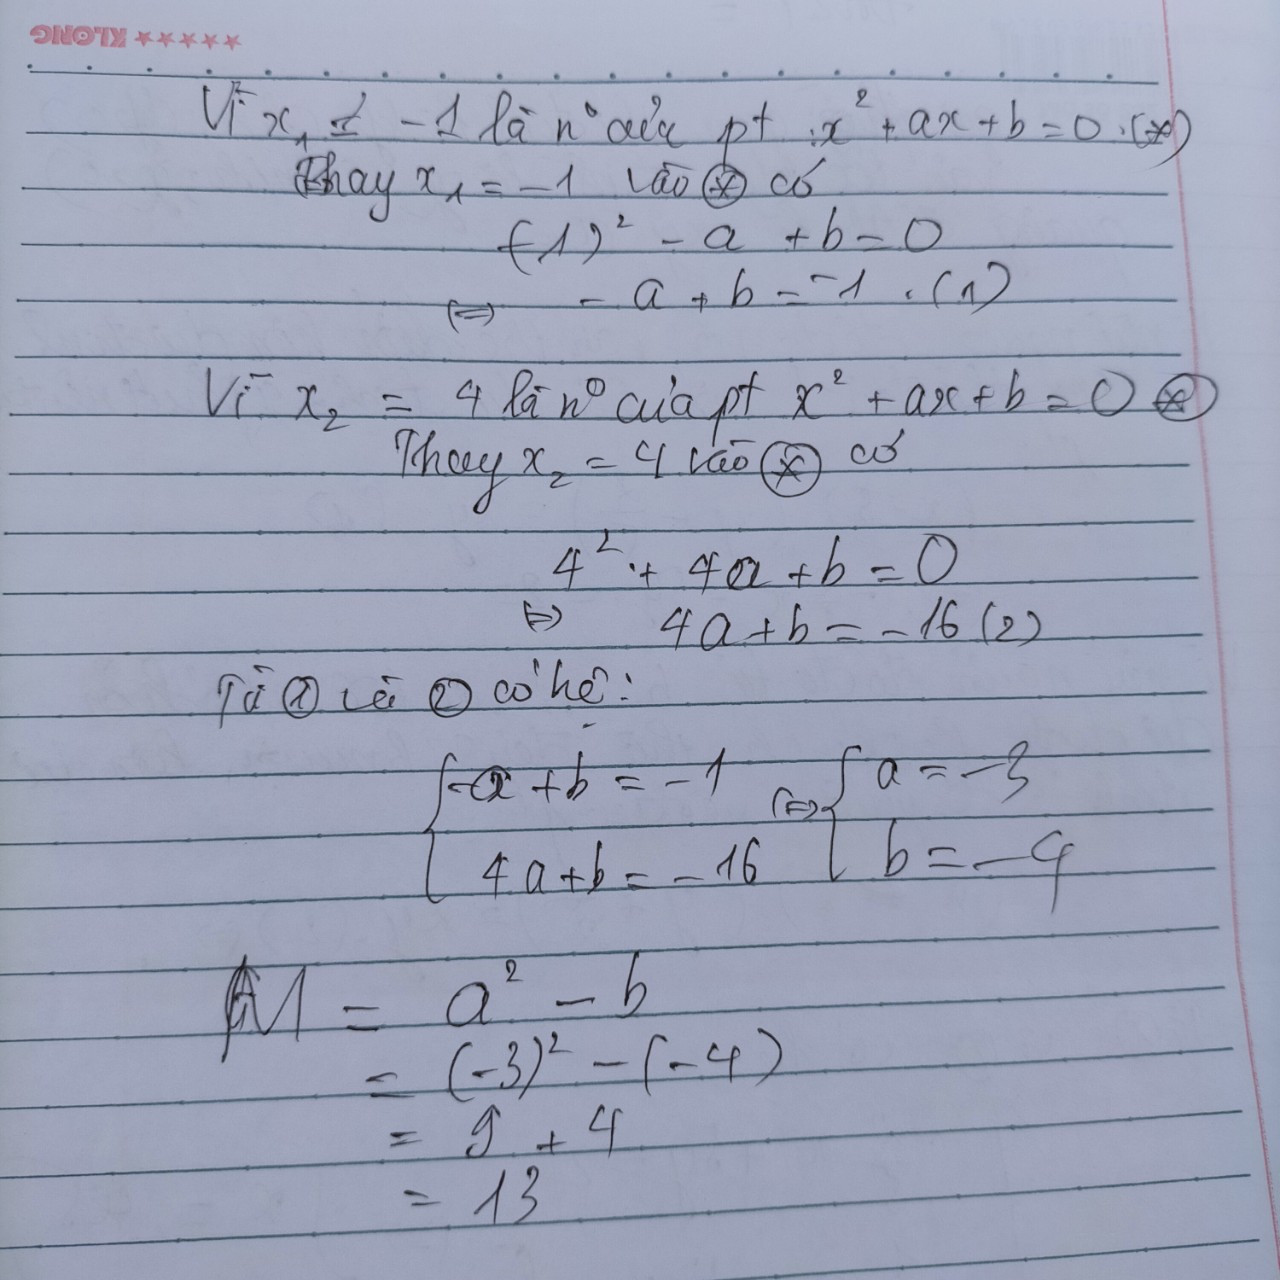 ★★★★★ KLONG
Vì x₁ = -1 là n° của pt x² + ax + b = 0 (*)
Thay x₁ = -1 vào (*) có
(-1)² - a + b = 0
(=) - a + b = -1 (1)
Vì x₂ = 4 là n° của pt x² + ax + b = 0 (*)
Thay x₂ = 4 vào (*) có
4² + 4a + b = 0
(=) 4a + b = -16 (2)
Từ ① và ② có hệ:
{ -a + b = -1 (=) { a = -3
4a + b = -16 b = -4
M = a² - b
= (-3)² - (-4)
= 9 + 4
= 13